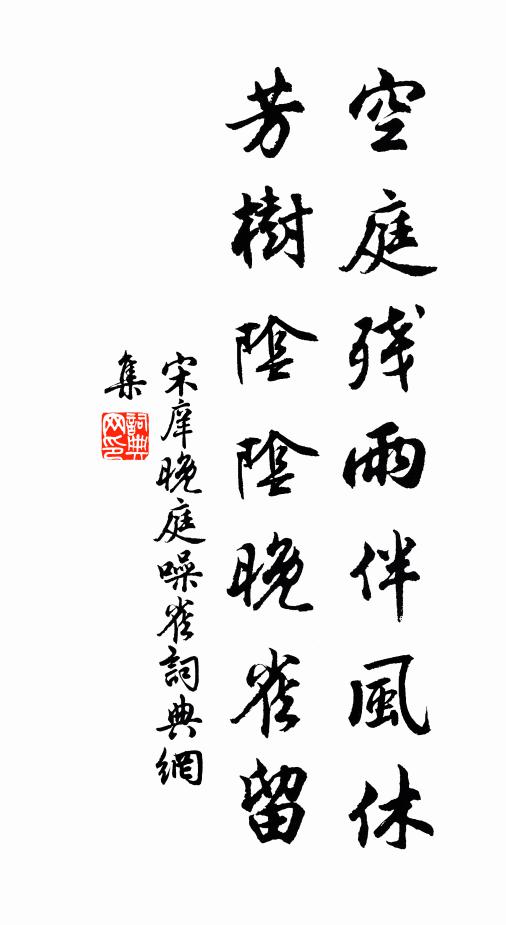 空庭残雨伴風休
芳樹陰陰晚雀留
宋庠晚庭噪雀詞典網
集
詞典网印